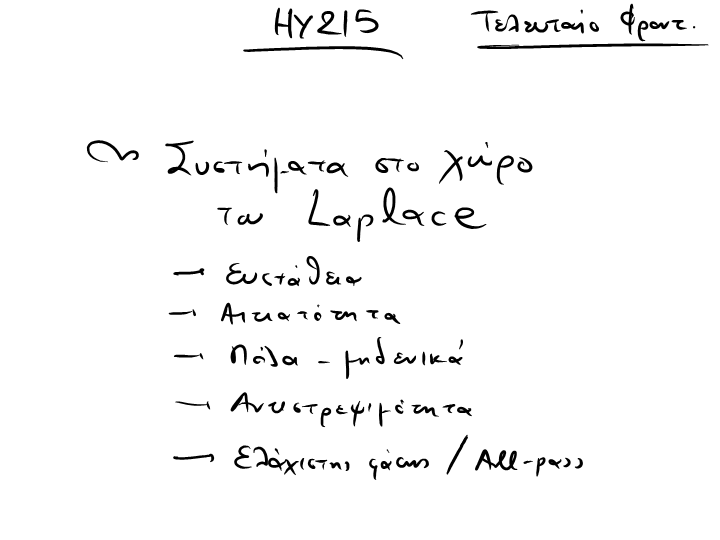 ΗΥ215 Τελευταίο Φροντ.
Συστήματα στο χώρο
του Laplace
- Ευστάθεια
- Αιτιατότητα
- Πόλοι - μηδενικά
- Αντιστρεψιμότητα
- Ελάχιστης φάσης / All-pass